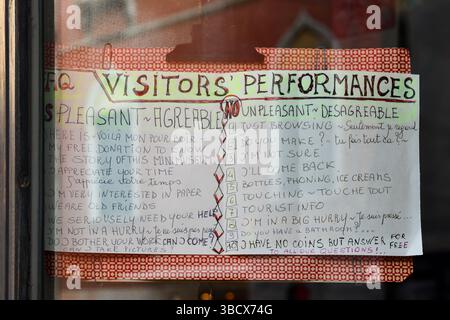 FAQ VISITORS' PERFORMANCES
PLEASANT ~ AGREABLE
HERE IS ~ VOILÀ MON POURBOIRE
MY FREE DONATION TO KNOW
THE STORY OF THIS MINI
I APPRECIATE YOUR TIME
J'apprécie votre temps
I'M VERY INTERESTED IN PAPER
WE ARE OLD FRIENDS
WE SERIOUSLY NEED YOUR HELP
I'M NOT IN A HURRY ~ Je suis pas
DO I BOTHER YOUR WORK CAN I COME?
CAN I TAKE PICTURES?
NO UNPLEASANT ~ DESAGREABLE
1 JUST BROWSING ~ Seulement je regard
2 DO YOU MAKE? ~ tu fais tout ça?
3 I'M NOT SURE
4 I'LL COME BACK
5 BOTTES, PHONING, ICE CREAMS
6 TOUCHING ~ TOUCHE TOUT
7 TOURIST INFO
8 I'M IN A BIG HURRY ~ Je suis pressé
9 DO YOU HAVE A BATHROOM?
10 I HAVE NO COINS BUT ANSWER FOR FREE
TO ALL OUR QUESTIONS!